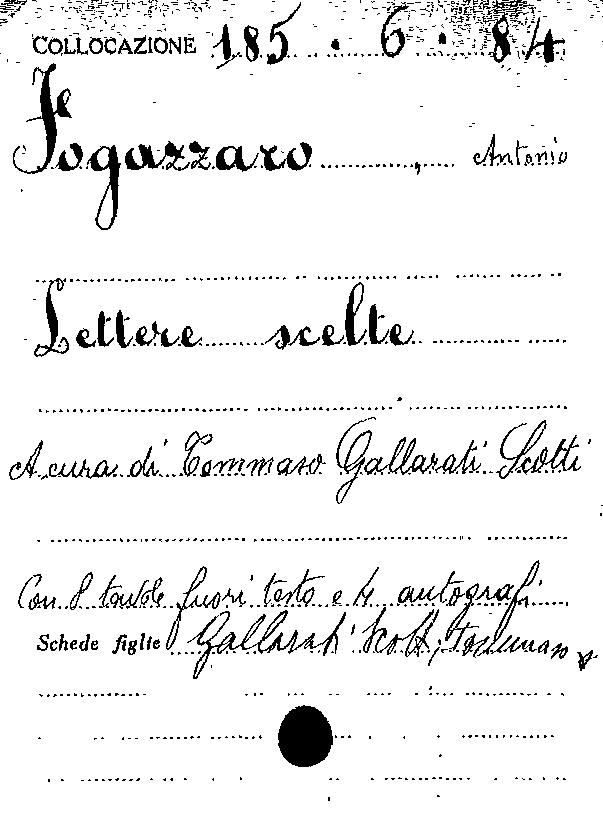 COLLOCAZIONE 185.6.84
Fogazzaro, Antonio
Lettere scelte
A cura di Tommaso Gallarati Scotti
Con 8 tavole fuori testo e 4 autografi
Schede figlie Gallarati Scotti, Tommaso